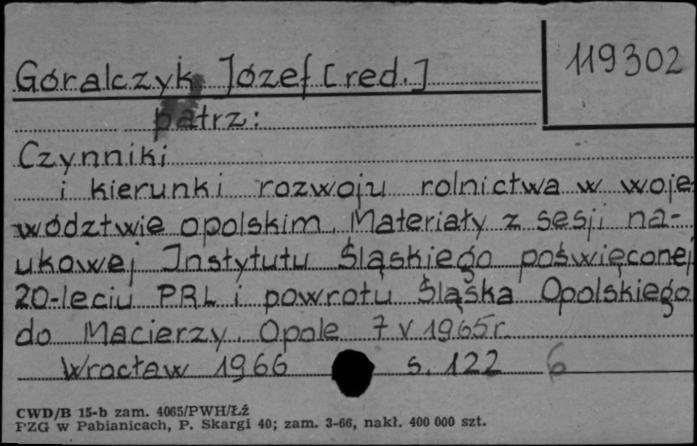 119302
Góralczyk Józef [red.]
patrz:
Czynniki
i kierunki rozwoju rolnictwa w woje-
wództwie opolskim. Materiały z sesji na-
ukowej Instytutu Śląskiego poświęconej
20-leciu PRL i powrotu Śląska Opolskiego
do Macierzy. Opole 7 V 1965r.
Wrocław 1966 s. 122 6
CWD/B 15-b zam. 4065/PWH/Łź
PZG w Pabianicach, P. Skargi 40; zam. 3-66, nakł. 400 000 szt.